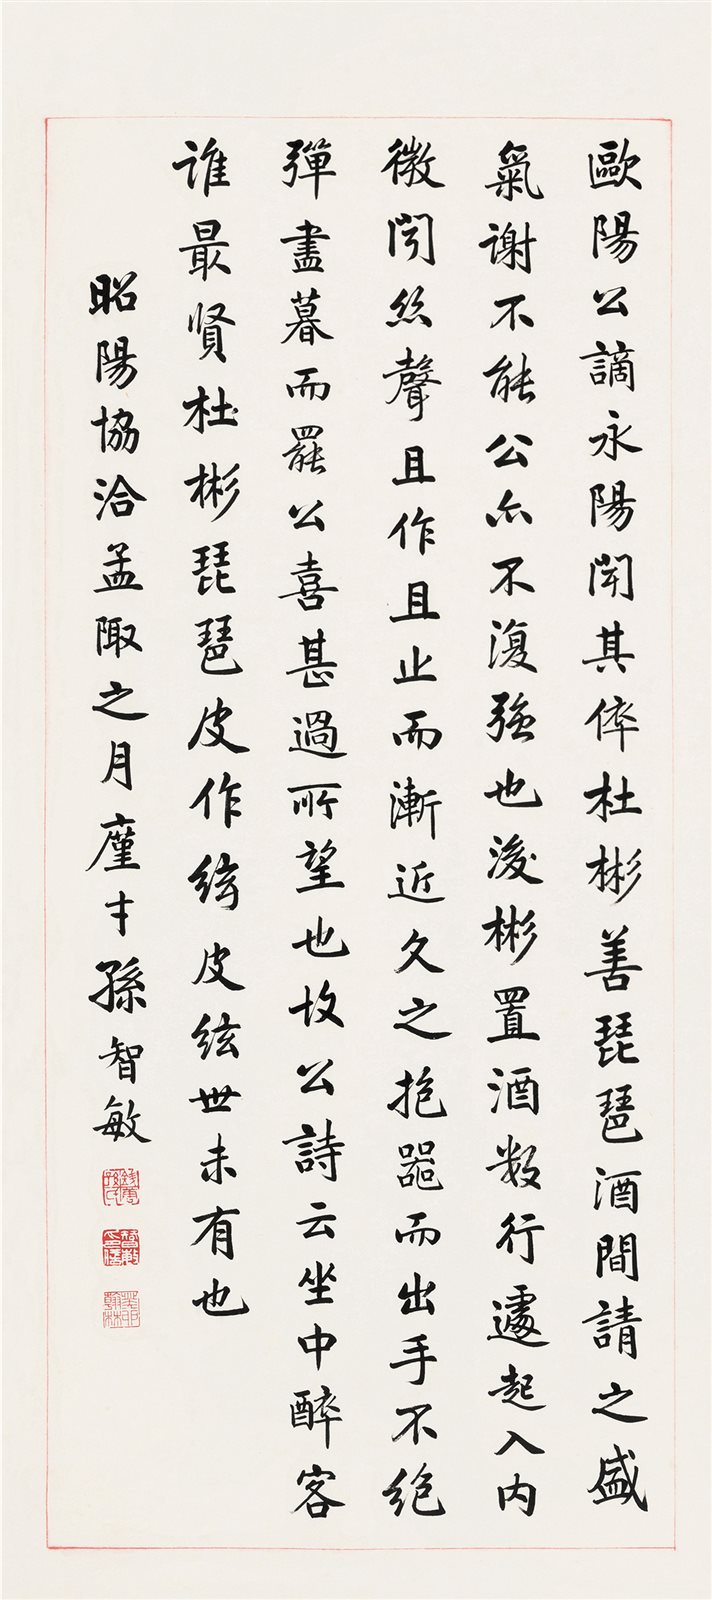 歐陽公謫永陽聞其倅杜彬善琵琶酒間請之盛
氣謝不能公亦不復強也後彬置酒數行遽起入內
微聞絲聲且作且止而漸近久之抱器而出手不絕
彈盡暮而罷公喜甚過所望也故公詩云坐中醉客
誰最賢杜彬琵琶皮作絃皮絃世未有也
昭陽協洽孟陬之月廑才孫智敏
錢唐孫氏
智敏
翰林